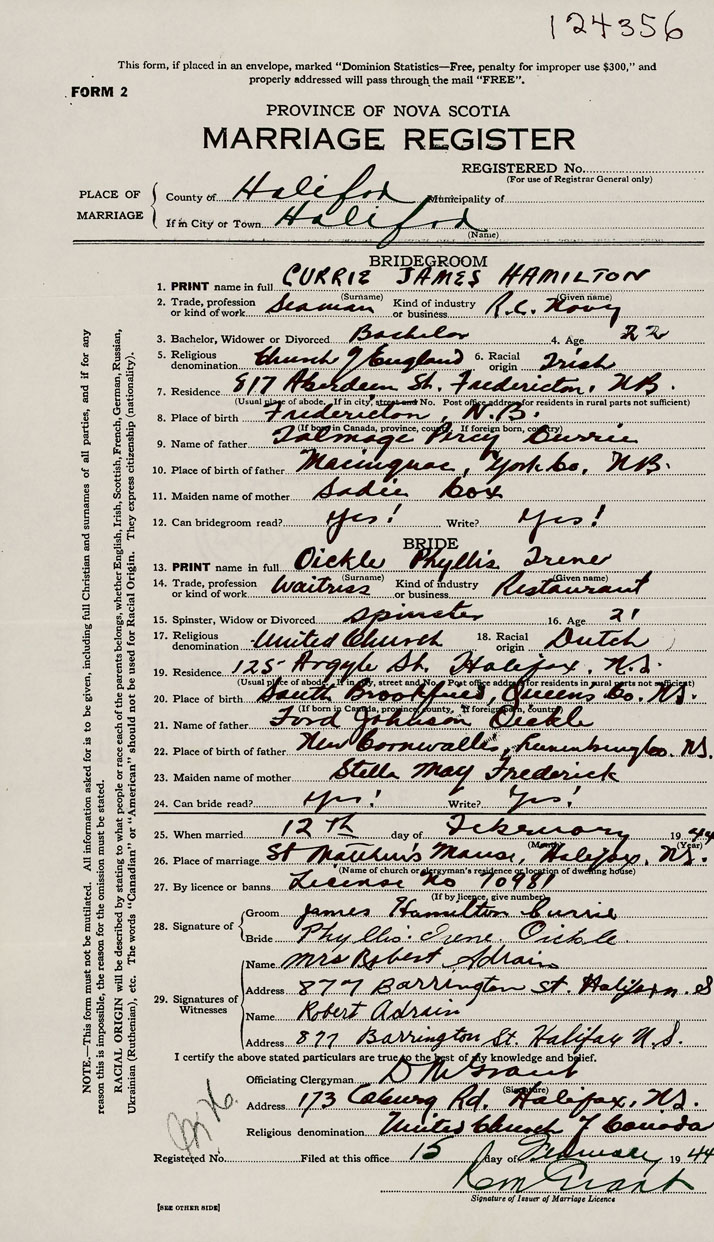 124356
This form, if placed in an envelope, marked "Dominion Statistics—Free, penalty for improper use $300," and
properly addressed will pass through the mail "FREE".
FORM 2
PROVINCE OF NOVA SCOTIA
MARRIAGE REGISTER
REGISTERED No.
(For use of Registrar General only)
PLACE OF MARRIAGE
County of Halifax Municipality of
If in City or Town Halifax
(Name)
BRIDEGROOM
1. PRINT name in full CURRIE JAMES HAMILTON
(Surname) (Given name)
2. Trade, profession or kind of work Seaman Kind of industry or business R.C. Navy
3. Bachelor, Widower or Divorced Bachelor 4. Age 22
5. Religious denomination Church of England 6. Racial origin Irish
7. Residence 817 Aberdeen St. Fredericton, N.B.
(Usual place of abode. If in city, street and No. Post office address for residents in rural parts not sufficient)
8. Place of birth Fredericton, N.B.
(If born in Canada, province, county. If foreign born, country)
9. Name of father Talmage Percy Currie
10. Place of birth of father Macinquac, York Co, N.B.
11. Maiden name of mother Sadie Cox
12. Can bridegroom read? Yes! Write? Yes!
BRIDE
13. PRINT name in full Oickle Phyllis Irene
(Surname) (Given name)
14. Trade, profession or kind of work Waitress Kind of industry or business Restaurant
15. Spinster, Widow or Divorced Spinster 16. Age 21
17. Religious denomination United Church 18. Racial origin Dutch
19. Residence 125 Argyle St. Halifax, N.S.
(Usual place of abode. If in city, street and No. Post office address for residents in rural parts not sufficient)
20. Place of birth South Brookfield, Queens Co. N.S.
(If born in Canada, province, county. If foreign born, country)
21. Name of father Ford Johnson Oickle
22. Place of birth of father New Cornwallis, Lunenburg Co. N.S.
23. Maiden name of mother Stella May Frederick
24. Can bride read? Yes! Write? Yes!
25. When married 12th day of February 1944
(Month) (Year)
26. Place of marriage St Matthew's Manse, Halifax, N.S.
(Name of church or clergyman's residence or location of dwelling house)
27. By licence or banns License No 10981
(If by licence, give number)
28. Signature of
Groom James Hamilton Currie
Bride Phyllis Irene Oickle
29. Signatures of Witnesses
Name Mrs Robert Adrain
Address 877 Barrington St. Halifax N.S
Name Robert Adrain
Address 877 Barrington St. Halifax N.S.
I certify the above stated particulars are true to the best of my knowledge and belief.
Officiating Clergyman D M Grant
(Signature)
Address 173 Coburg Rd. Halifax, N.S.
Religious denomination United Church of Canada
Registered No. Filed at this office 15 day of February 1944
Signature of Issuer of Marriage Licence
[SEE OTHER SIDE]
NOTE.—This form must not be mutilated. All information asked for is to be given, including full Christian and surnames of all parties, and if for any
reason this is impossible, the reason for the omission must be stated.
RACIAL ORIGIN will be described by stating to what people or race each of the parents belongs, whether English, Irish, Scottish, French, German, Russian,
Ukrainian (Ruthenian), etc. The words "Canadian" or "American" should not be used for Racial Origin. They express citizenship (nationality).